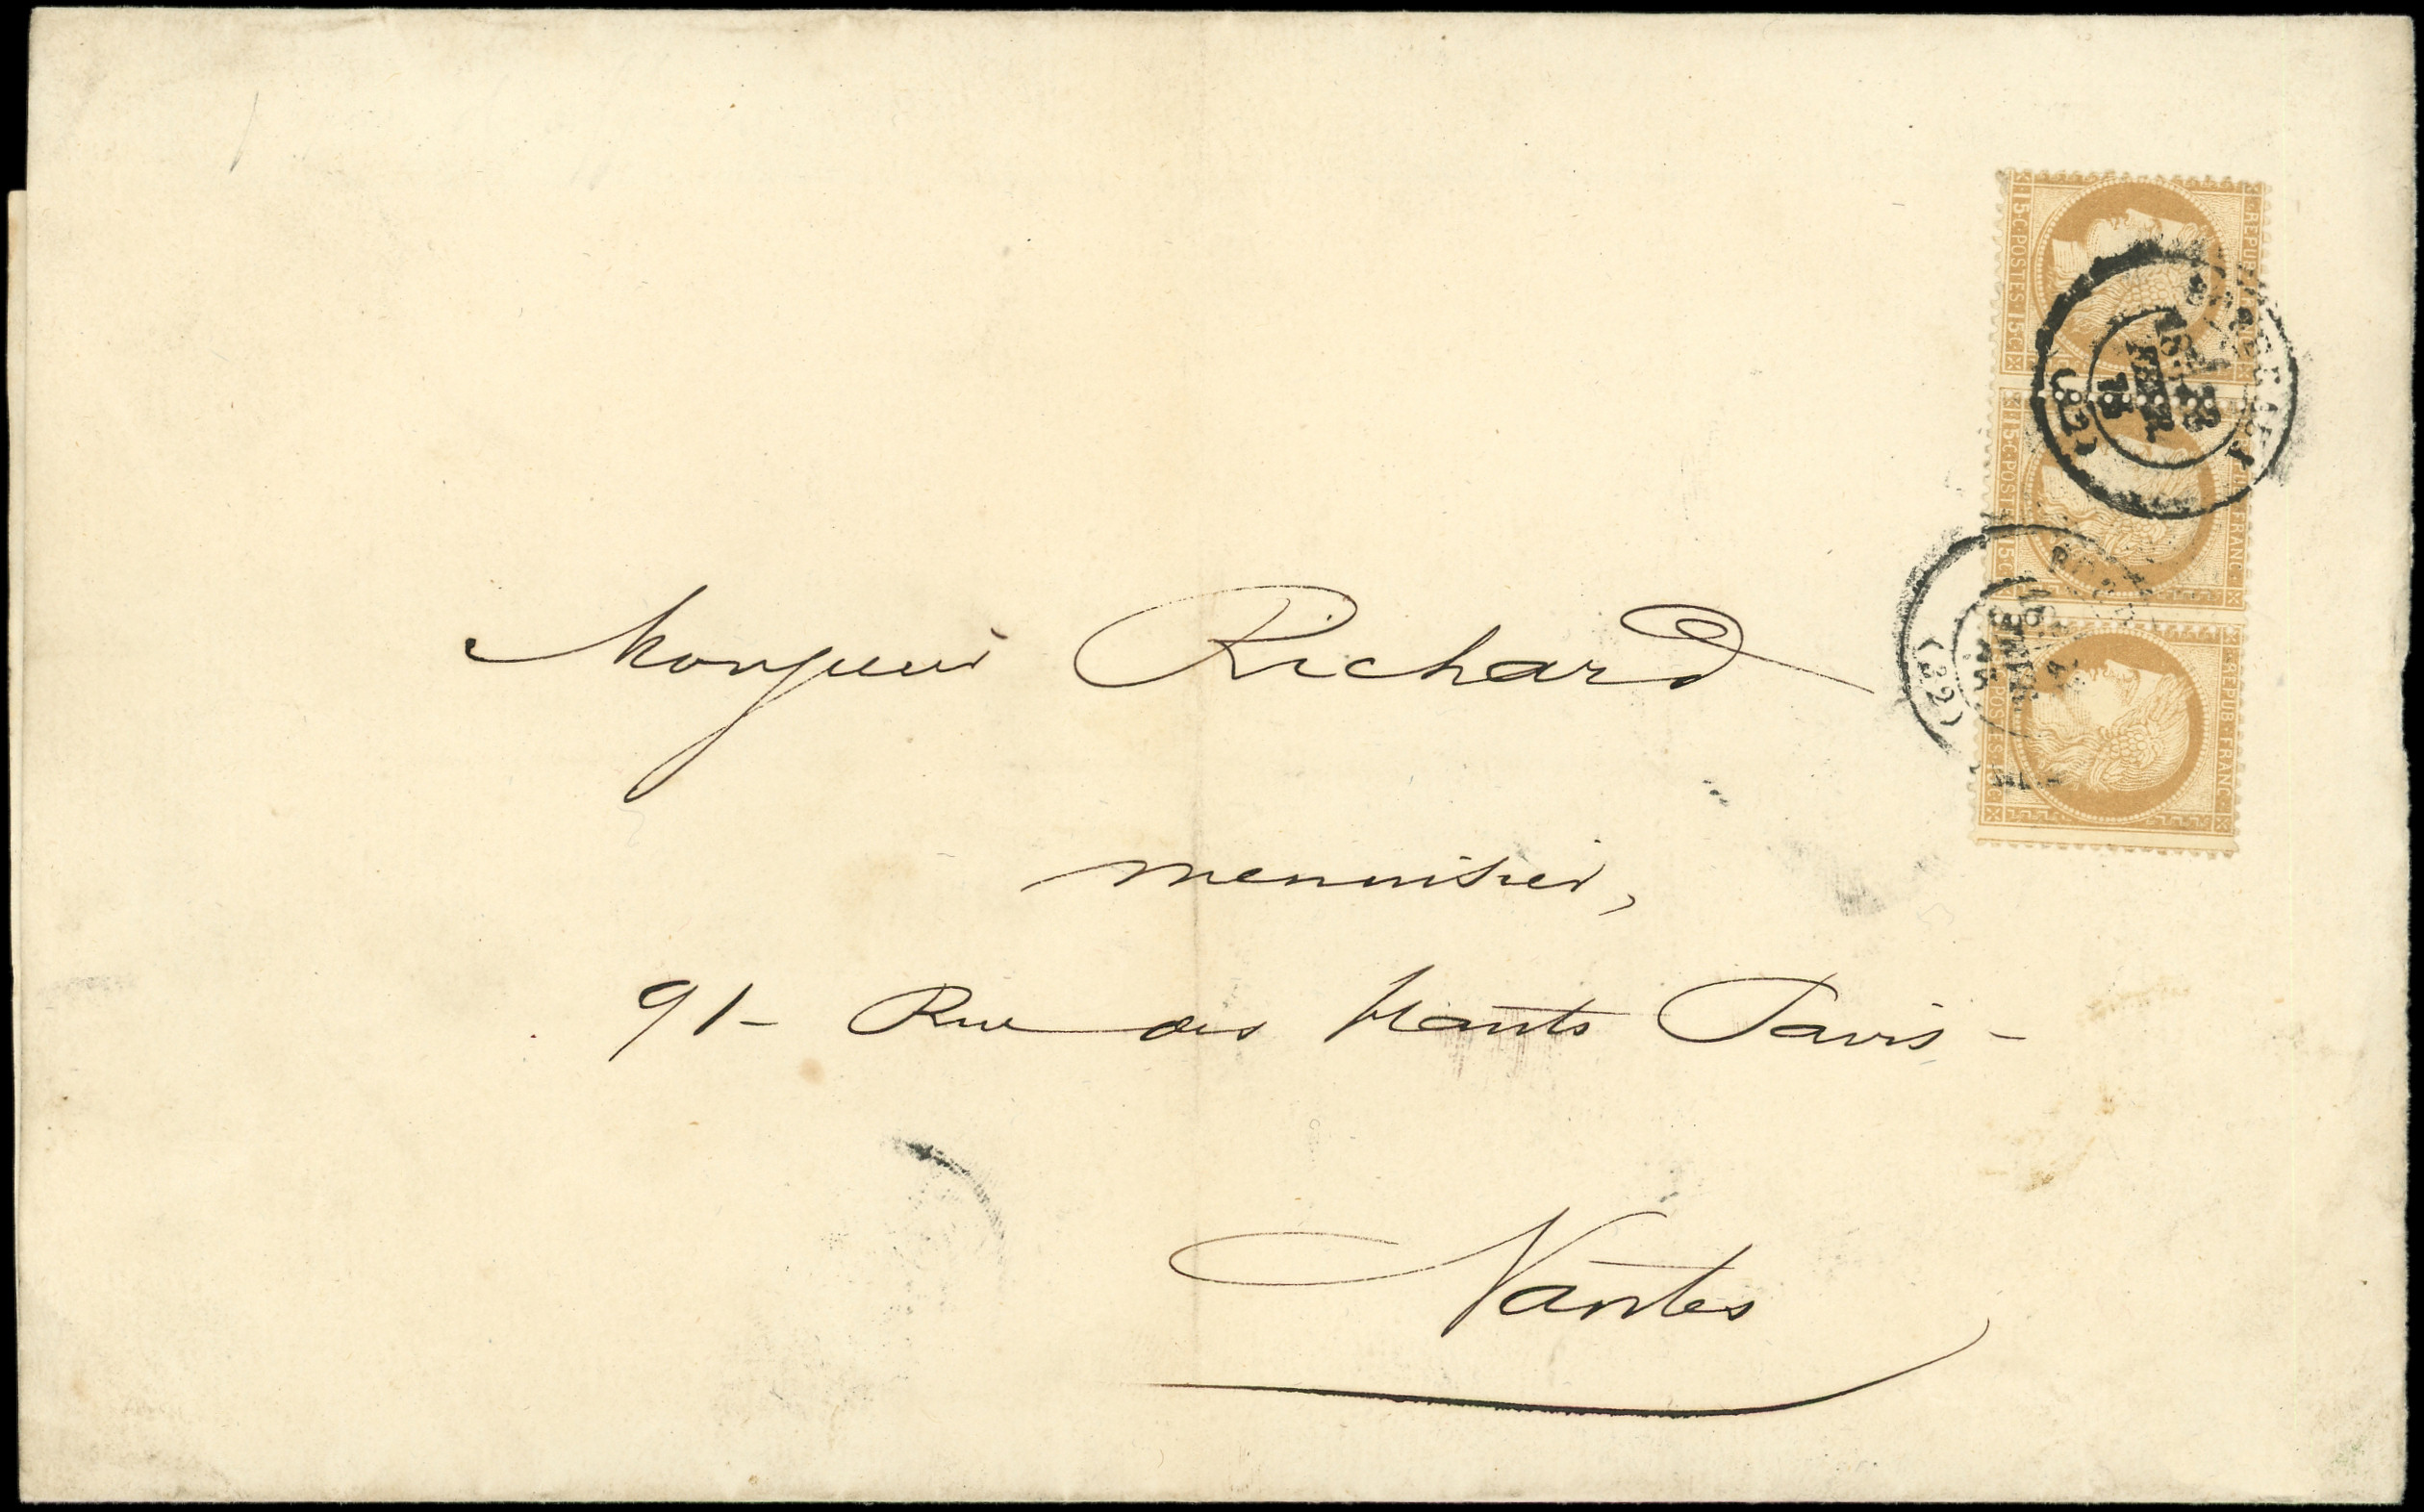 Monsieur Richard
menuisier,
91 - Rue des Hauts Pavés -
Nantes
REPUB FRANC
15·C·POSTES·15·C
REPUB·FRANC·
15·C·POSTES 15·C
REPUB·FRANC·
POSTES 15·C
(22)
(22)